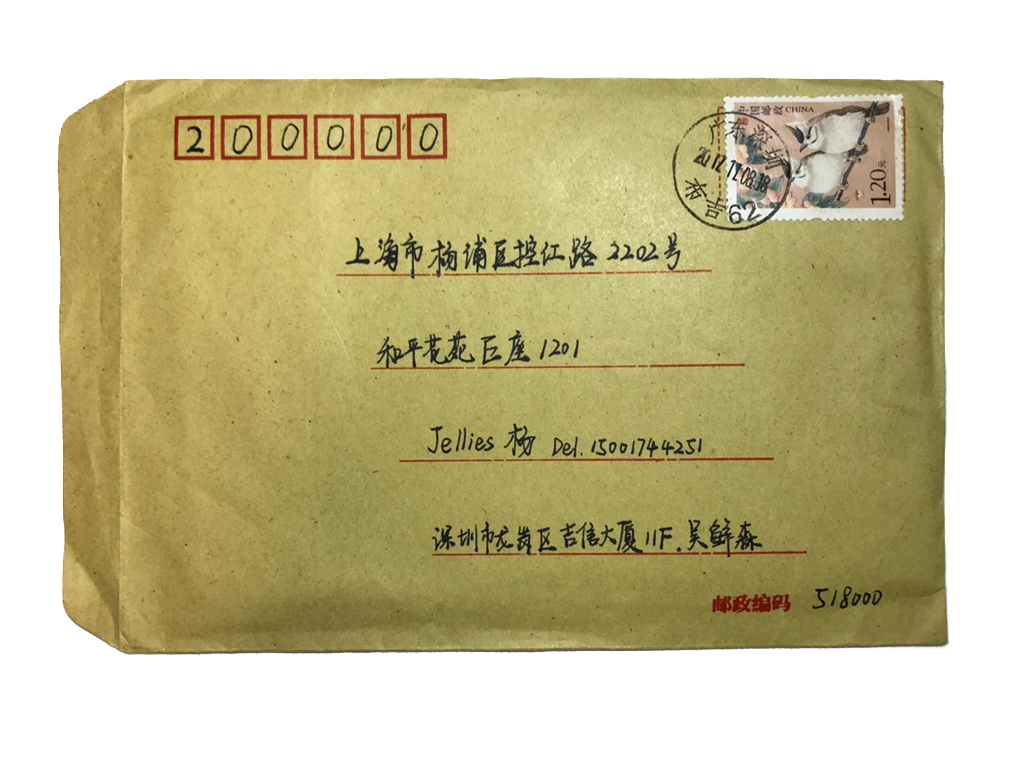 200000
中国邮政 CHINA
1.20元
广东深圳
2017.11.08.18
坂田62
上海市杨浦区控江路2202号
和平花苑E座1201
Jellies 杨 Del. 15001744251
深圳市龙岗区吉信大厦11F.吴鲜森
邮政编码 518000